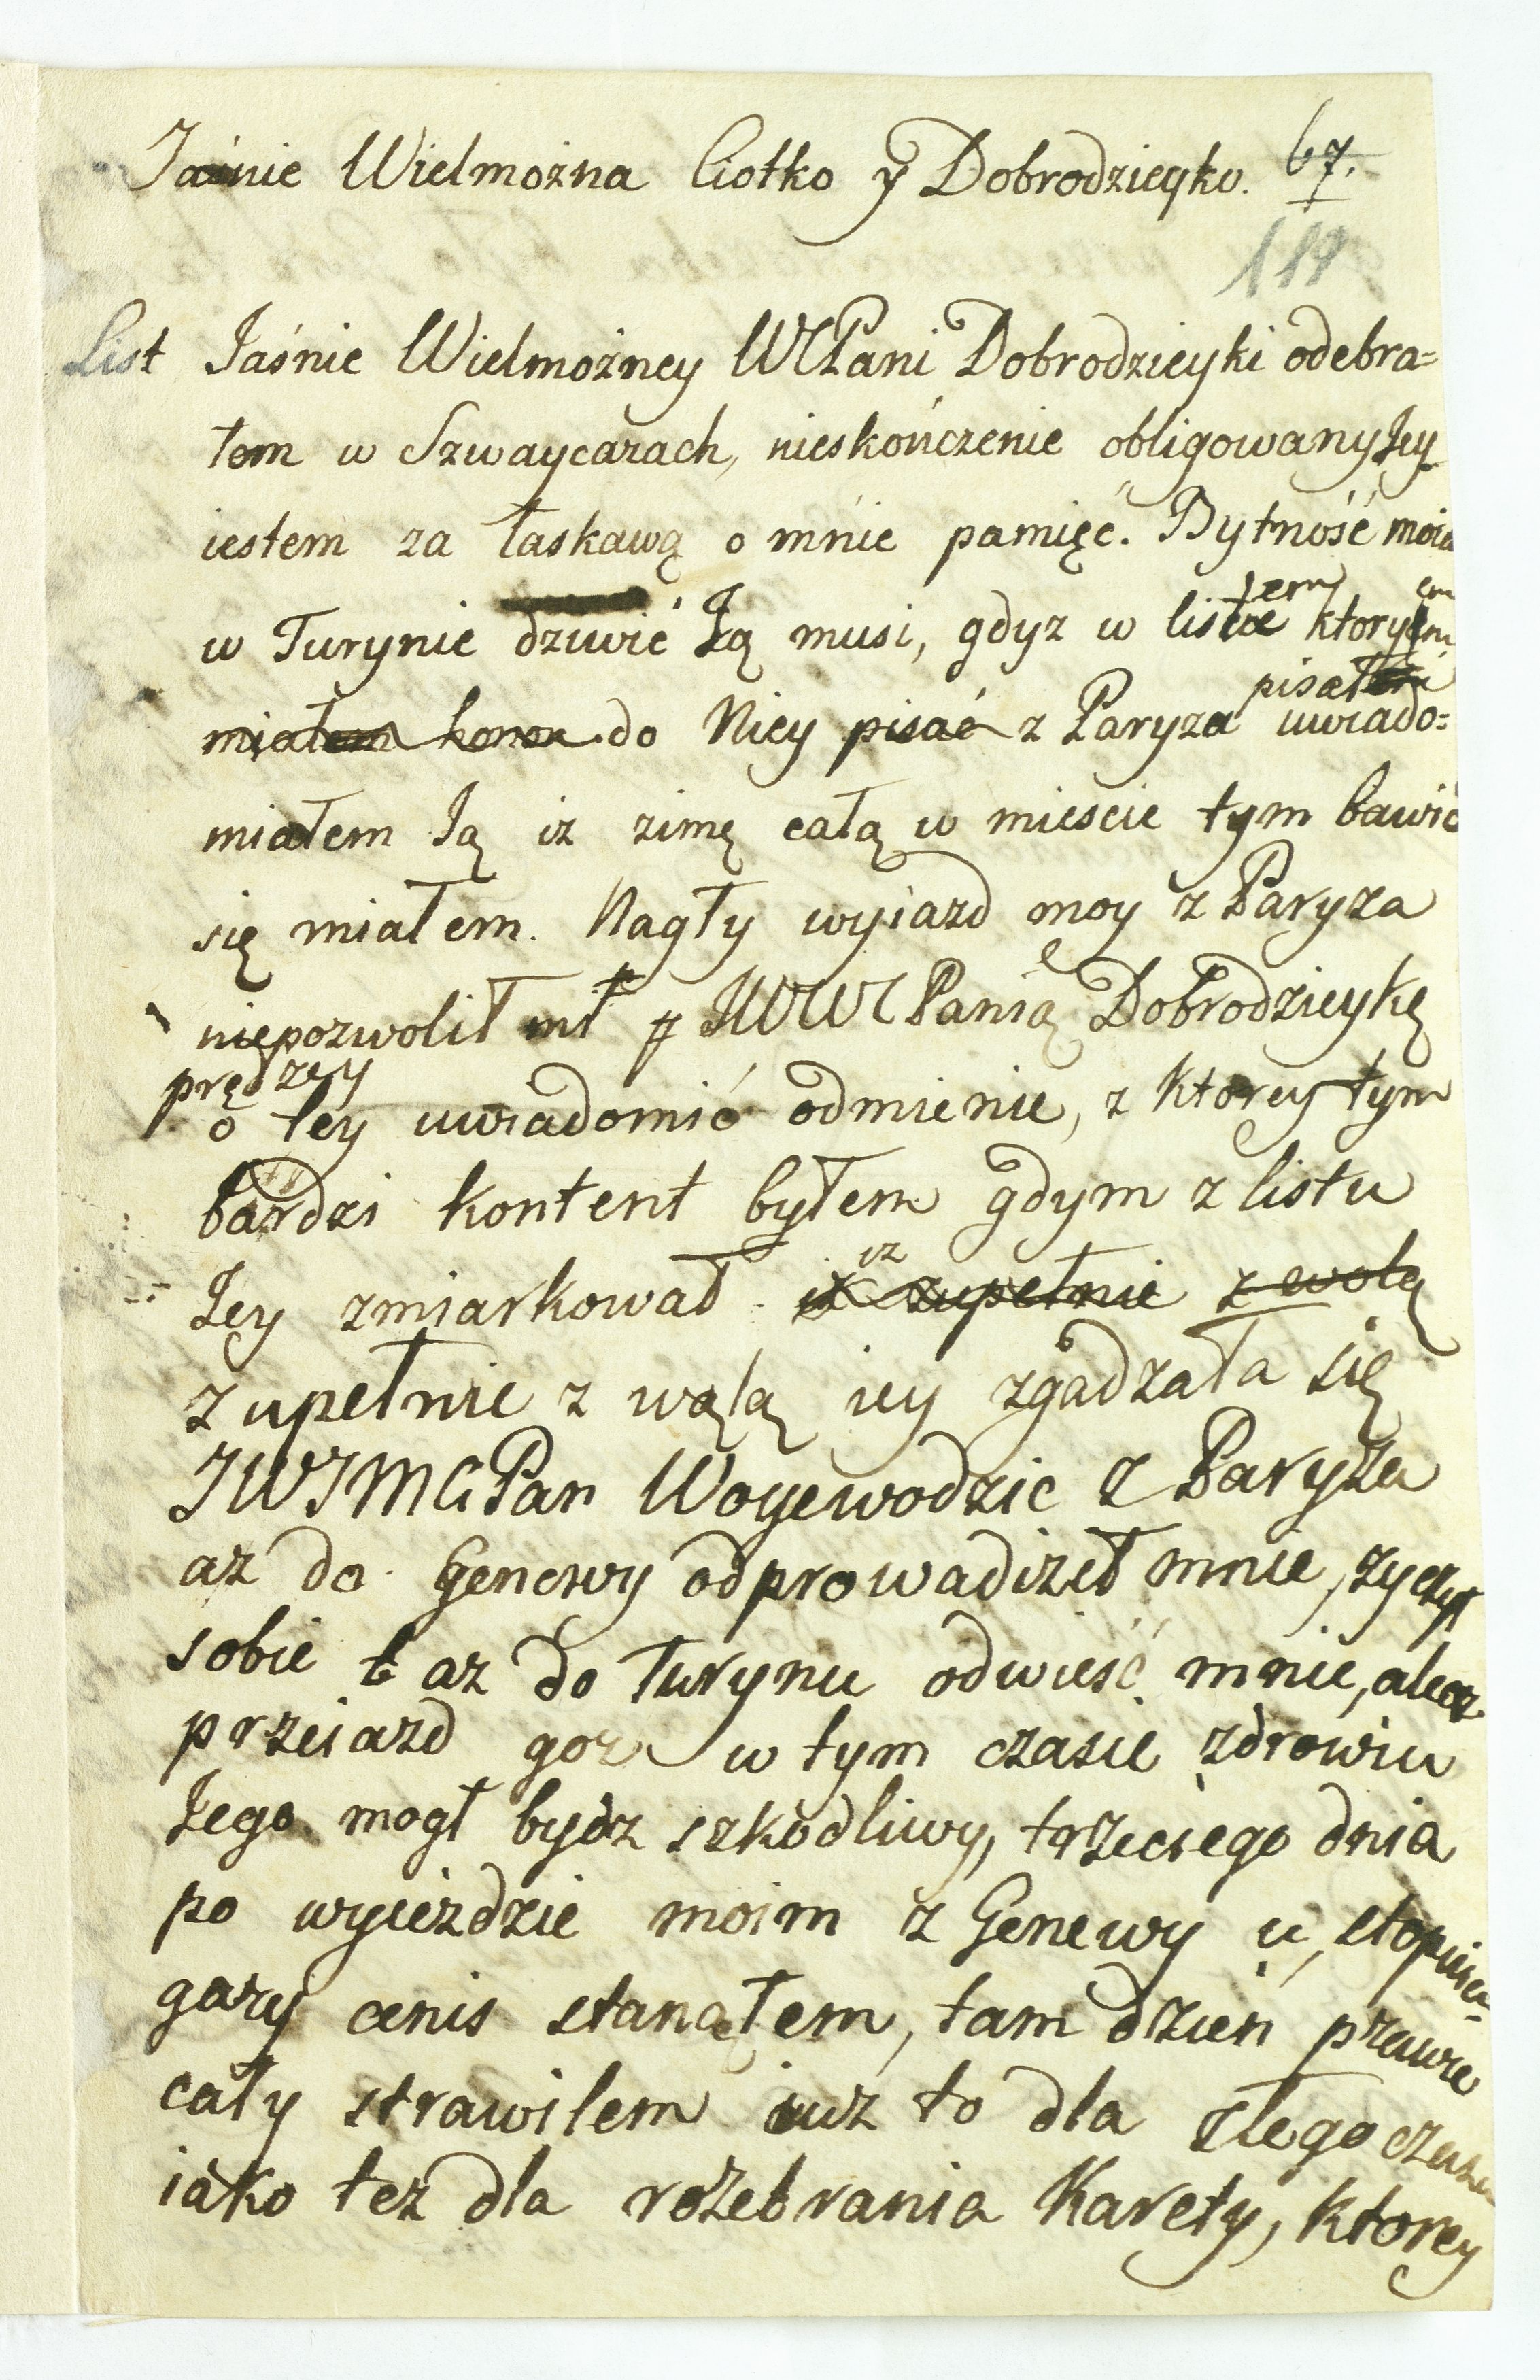 Jaśnie Wielmożna Ciotko y Dobrodzieyko. 67.
119
List Jaśnie Wielmożney WPani Dobrodzieyki odebra=
łem w Szwaycarach, nieskończenie obligowany Jey
iestem za łaskawą o mnie pamięć. Bytność moia
w Turynie dziwić Ją musi, gdyz w liscie ktorym
miałem honor do Niey pisać z Paryza pisałem uwiado=
miałem Ją iz zimę całą w miescie tym bawić
się miałem. Nagły wyiazd moy z Paryza
niepozwolił mi JWWPanią Dobrodzieykę
prędzey
o tey uwiadomić odmienie, z ktorey tym
bardzi kontent byłem gdym z listu
iz
Jey zmiarkował iz zupełnie z wolą
zupełnie z wolą iey zgadzała się
JWJMCPan Woyewodzic z Paryża
az do Genewy odprowadził mnie, zyczył
sobie az do Turynu odwieść mnie, alecz
przeiazd gor w tym czasie zdrowiu
Jego mogł bydz szkodliwy, trzeciego dnia
po wyieździe moim z Genewy u stopniow
gory cenis stanąłem, tam dzień prawie
cały strawilem iuz to dla złego czasu
iako tez dla rozebrania Karety, ktorey